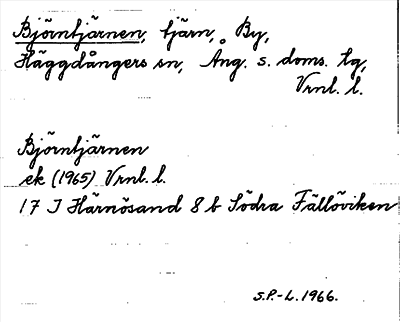 Björntjärnen, tjärn, By,
Häggdångers sn, Ång. s. doms. tg,
Vrnl. l.
Björntjärnen
ek (1965) Vrnl. l.
17 I Härnösand 8 b Södra Fällöviken
S.P.-L. 1966.